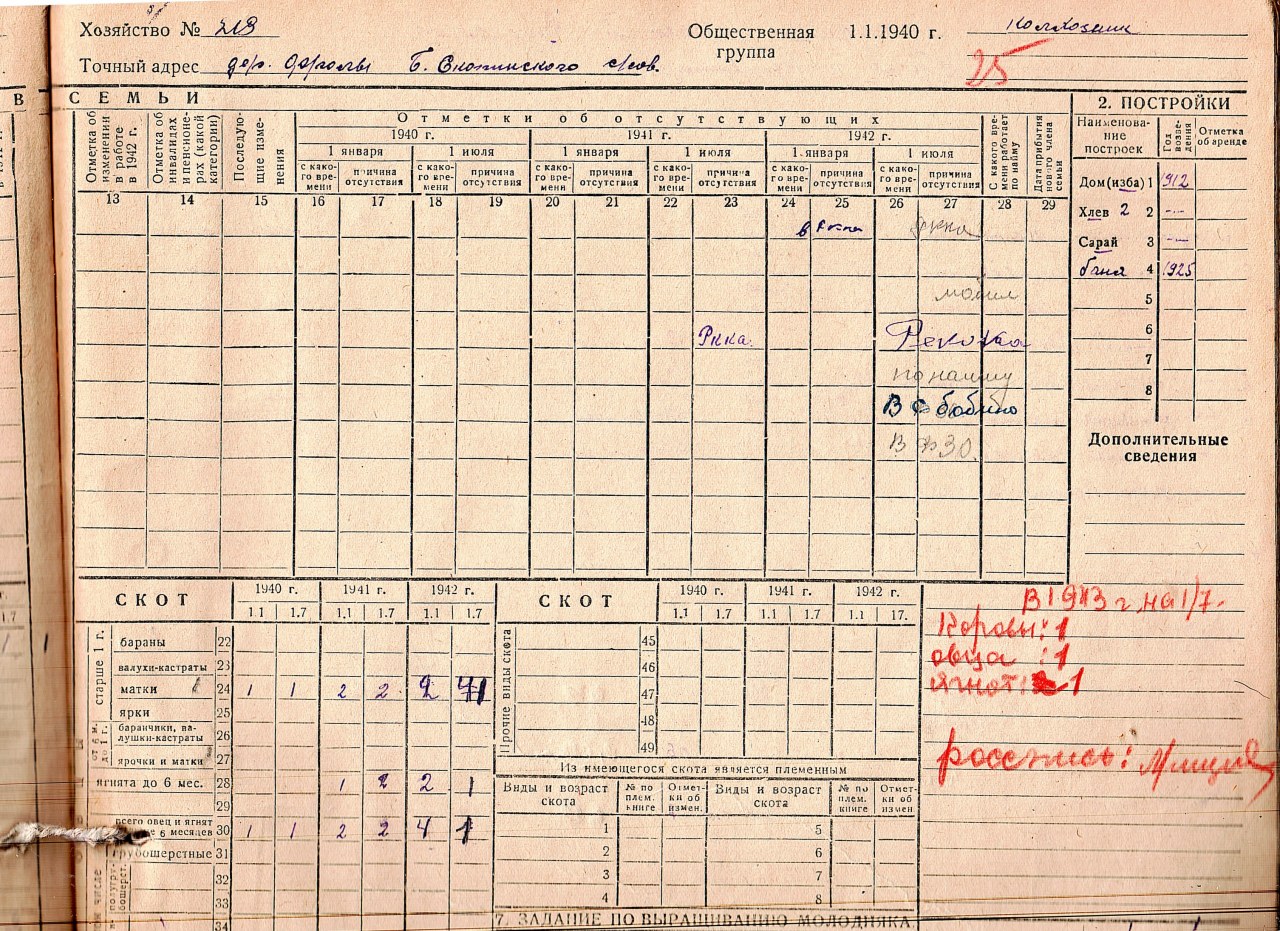 Хозяйство № 213
Общественная группа 1.1.1940 г. колхозник
Точный адрес дер. Фролы Б. Скопинского с/сов.
25
В СЕМЬИ
Отметка об изменении в работе в 1942 г.
Отметка об инвалидах и пенсионерах (какой категории)
Последующие изменения
Отметки об отсутствующих
1940 г. 1941 г. 1942 г.
1 января 1 июля 1 января 1 июля 1 января 1 июля
с какого времени причина отсутствия с какого времени причина отсутствия с какого времени причина отсутствия с какого времени причина отсутствия с какого времени причина отсутствия с какого времени причина отсутствия
С какого времени работает по найму
Дата прибытия нового члена семьи
13 14 15 16 17 18 19 20 21 22 23 24 25 26 27 28 29
в Ркка Ркка
мобил
Ркка.
по найму
В ФЗО.
2. ПОСТРОЙКИ
Наименование построек Год возведения Отметка об аренде
Дом (изба) 1 1912
Хлев 2 2 -"-
Сарай 3 -"-
баня 4 1925
5
6
7
8
Дополнительные сведения
СКОТ 1940 г. 1941 г. 1942 г.
1.1 1.7 1.1 1.7 1.1 1.7
старше 1 г.
бараны 22
валухи-кастраты 23
матки 24 1 1 2 2 2 1
ярки 25
от 6 м. до 1 г.
баранчики, валушки-кастраты 26
ярочки и матки 27
ягнята до 6 мес. 28 1 2 2 1
29
всего овец и ягнят 6 месяцев 30 1 1 2 2 4 1
грубошерстные 31
32
33
34
СКОТ 1940 г. 1941 г. 1942 г.
1.1 1.7 1.1 1.7 1.1 17.
Прочие виды скота
45
46
47
48
49
Из имеющегося скота является племенным
Виды и возраст скота № по плем. книге Отметки об измен. Виды и возраст скота № по плем. книге Отметки об измен.
1 5
2 6
3 7
4 8
7. ЗАДАНИЕ ПО ВЫРАЩИВАНИЮ МОЛОДНЯКА
В 1943 г. на 1/7.
Коровы: 1
овца : 1
ягнот: 1
росспись: